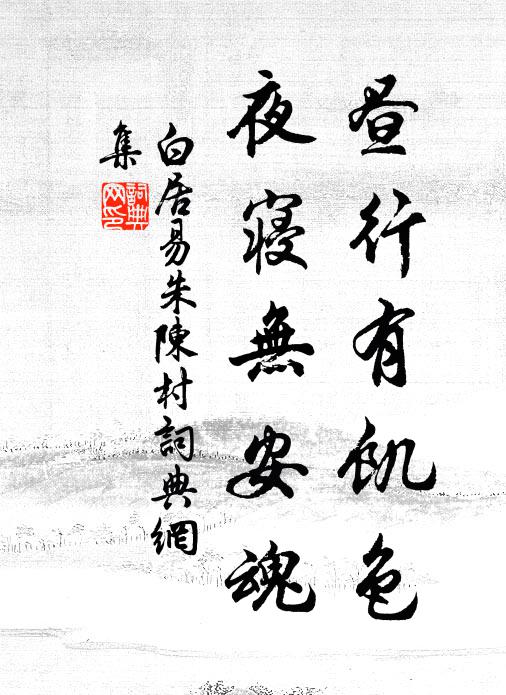 昼行有飢色
夜寝無安魂
白居易朱陳村詞典網
集
詞典
网印